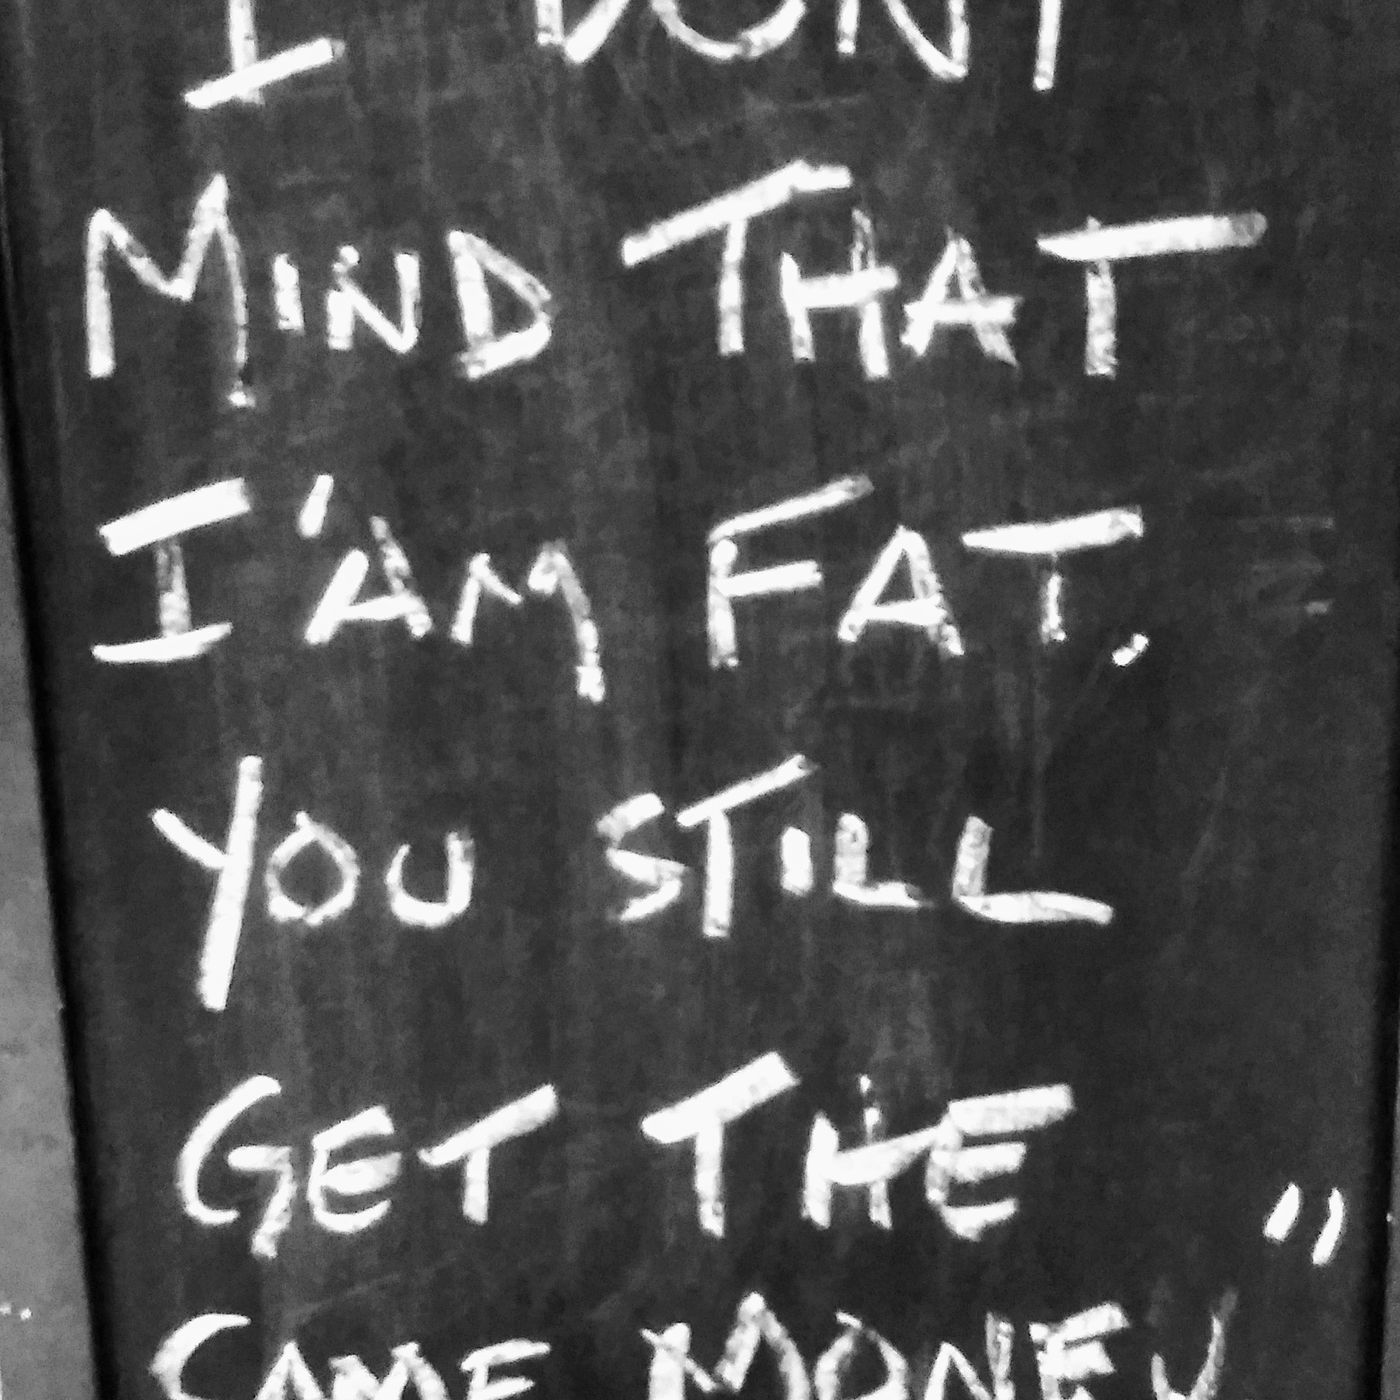 I DONT
MIND THAT
I'AM FAT.
YOU STILL
GET THE
SAME MONEY"